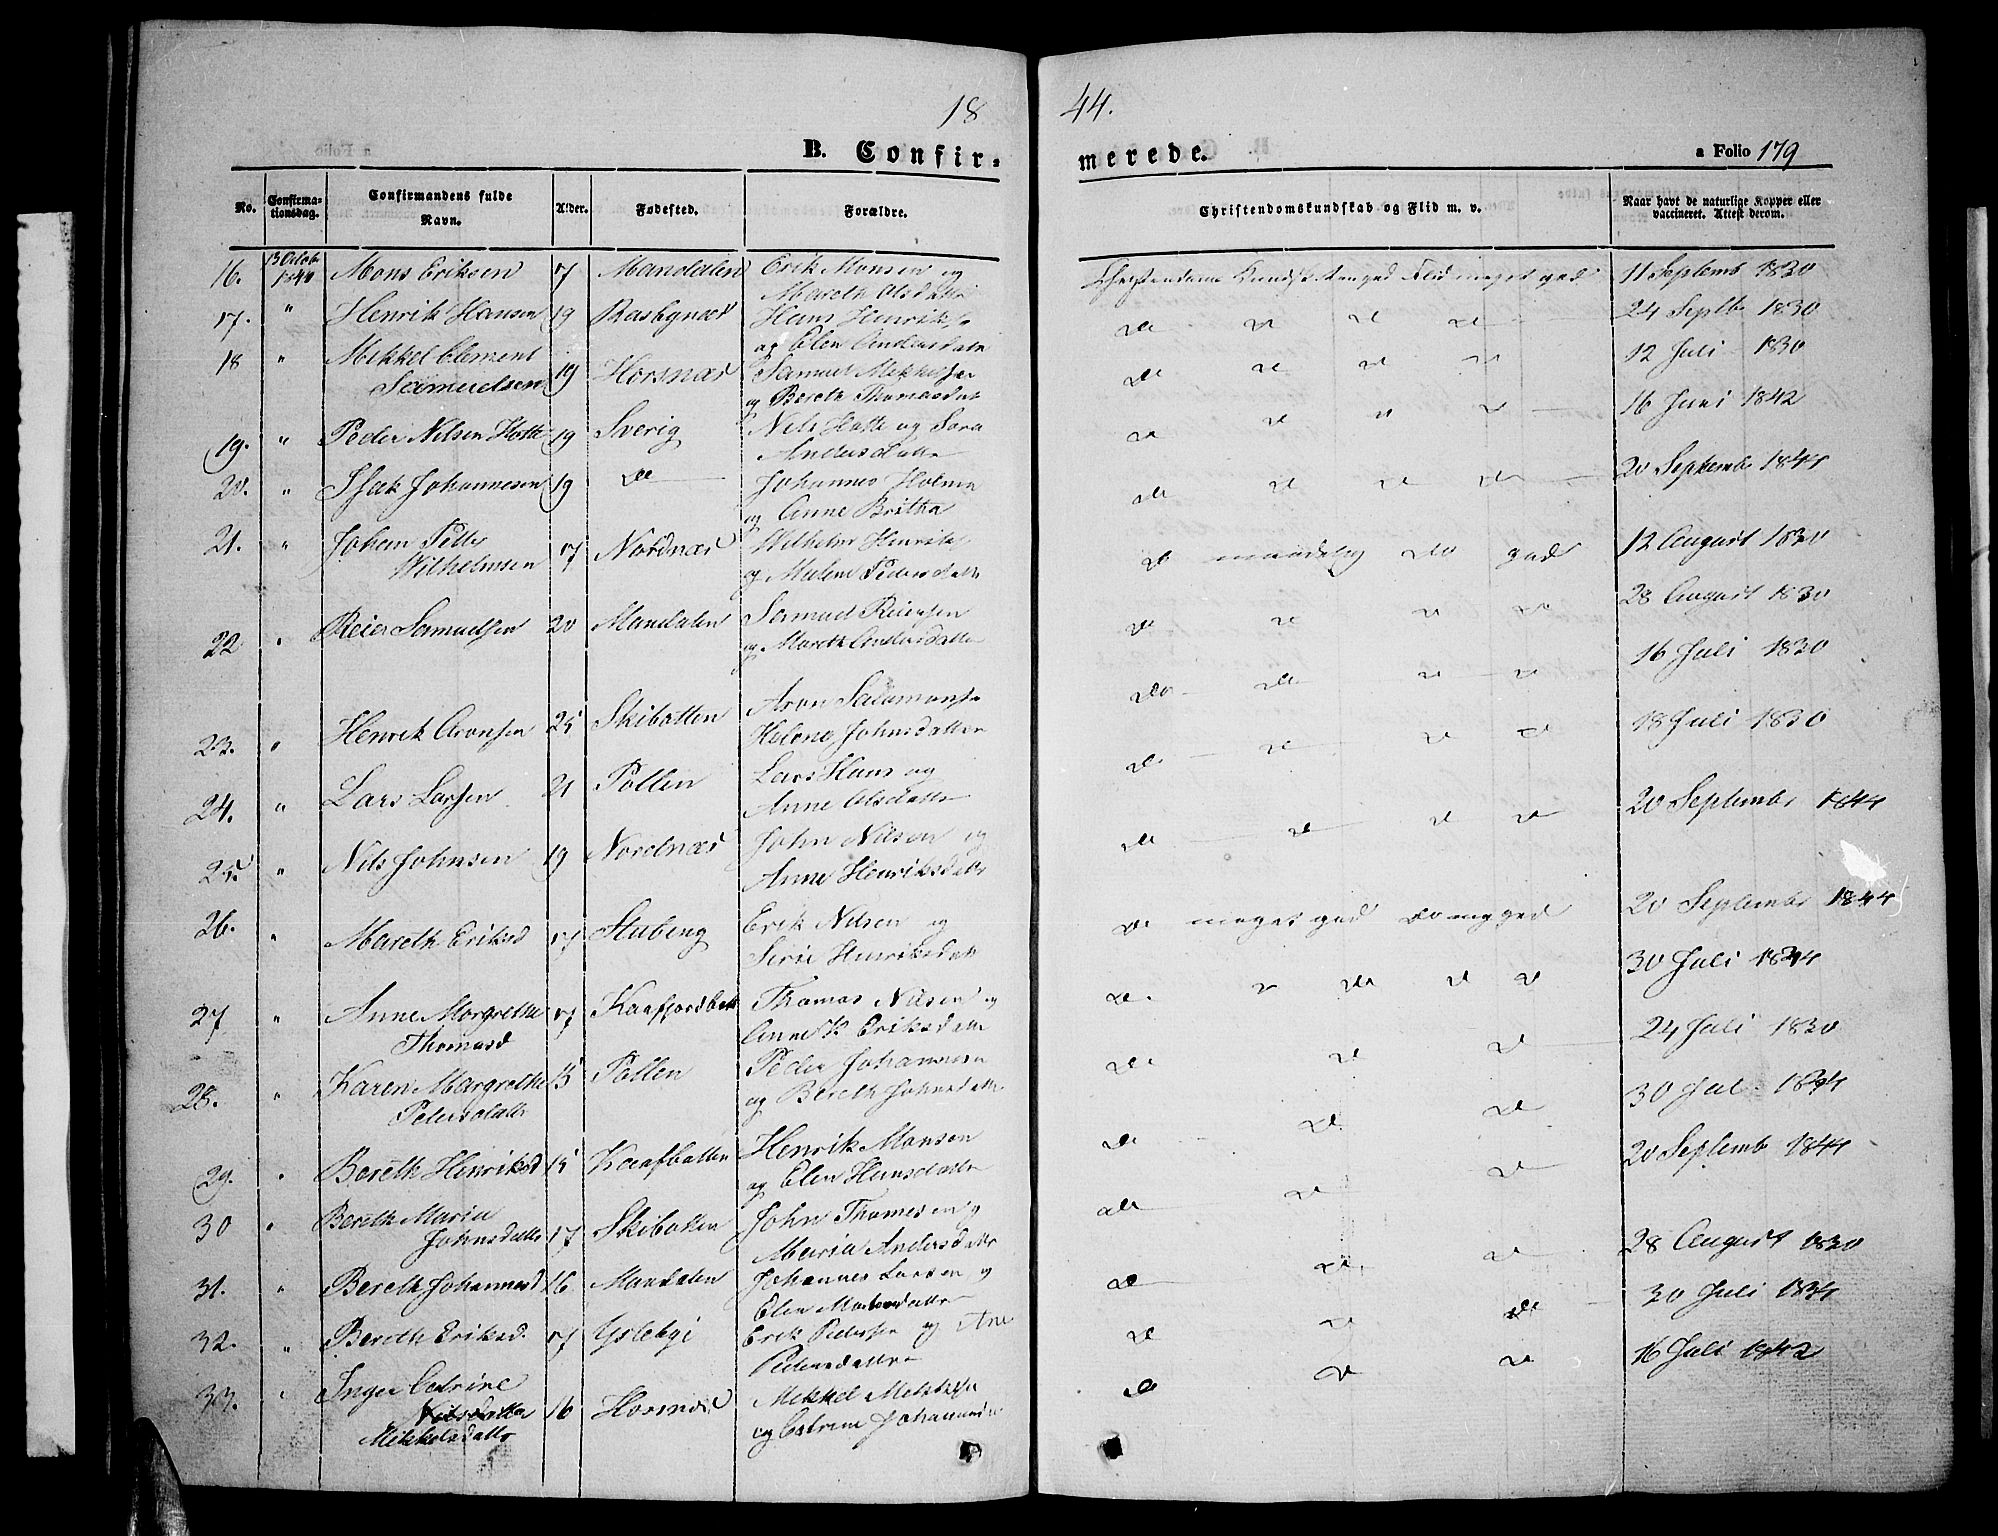 18 44.
B. Confirmerede.
a Folio 179
No. Confirmationsdag. Confirmandens fulde Navn. Alder. Fødested. Forældre. Christendomskundskab og Flid m. v. Naar havt de naturlige Kopper eller vaccineret. Attest derom.
16. 13 Octob 1844 Mons Eriksen 17 Mandalen Erik Monsen og Flid meget god 11 Septemb 1830
Mareth Olsdatter
17. " Henrik Hansen 19 Rasbynæs Hans Henriks. do do do do 24 Septb 1830
og Elen Andersdatr
18 " Mikkel Clement 19 Horsnæs Samuel Mikkelsen do do do do 12 Juli 1830
Samuelsen og Bereth Thomasdat
19. " Peder Nilsen Hotte 19 Sverig Nils Hotte og Sara do do do do 16 Juni 1842
Andersdattr
20. " Isak Johannesen 19 do Johannes Holmn do do do do 20 Septembr 1844
og Anne Britha
21. " Johan Petter 17 Nordnæs Wilhelm Henriks do maadelig do god 12 August 1830
Wilhelmsen og Malene Pedersdattr
22 " Reier Samuelsen 20 Mandalen Samuel Reiersen do do do do 28 August 1830
og Mareth Andersdatter
23. " Henrik Aronsen 25 Skibotten Aron Salamons. do do do do 16 Juli 1830
Helene Johnsdatter
24. " Lars Larsen 21 Pollen Lars Hans og do do do do 18 Juli 1830
Anne Olsdattr
25. " Nils Johnsen 19 Nordnæs John Nilsen og do do do do 20 Septembr 1844
Anne Henriksdattr
26. " Mareth Eriksd 17 Stubeng Erik Nilsen og do meget god do meg god 20 Septembr 1844
Siri Henriksdatt
27 " Anne Margrethe 17 Kaafjordbott Thomas Nilsen og do do do do do 30 Juli 1834
Thomasd Anne K Eriksdattr
28. " Karen Margrethe 15 Pollen Peder Johannesen do do do 24 Juli 1830
Pedersdattr og Bereth Johnsdattr
29. " Bereth Henriksd 15 Kaafbotten Henrik Monsen do do do 30 Jul 1834
og Elen Hansdattr
30 " Bereth Maria 17 Skibotten John Thomesen og do do do 20 Septemb 1844
Johnsdatter Maria Andersdattr
31. " Bereth Johannesd 16 Mandalen Johannes Larsen og do do do 28 August 1830
Elen
32. " Bereth Eriksd. 17 Yslebyi Erik Pedersen og Ane do do do 30 Juli 1834
Pedersdatter
33. " Inger Cathrine 16 Horsnæs Mikkel Mikkelsn do do do 16 Juli 1842
Nilsdatter og Catrine Johannesdr
Mikkelsdattr